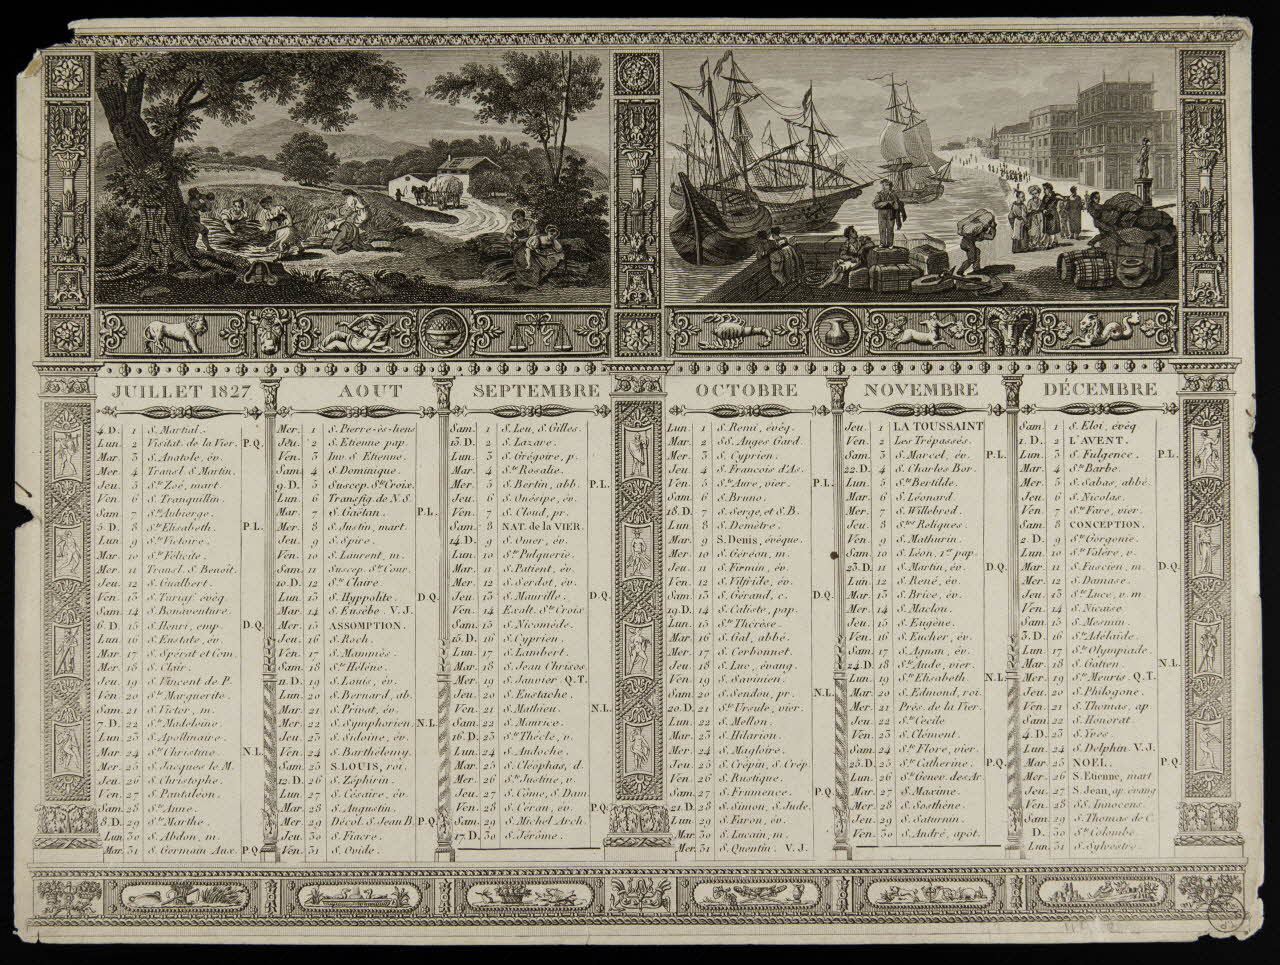 JUILLET 1827
4.D. 1 S. Martial.
Lun. 2 Visitat. de la Vier. P.Q.
Mar. 3 S. Anatole, év.
Mer. 4 Transl. S. Martin.
Jeu. 5 Ste Zoé, mart.
Ven. 6 S. Tranquillin.
Sam. 7 Ste Auberge.
5.D. 8 Ste Elisabeth. P.L.
Lun. 9 Ste Victoire.
Mar. 10 Ste Félicite.
Mer. 11 Transl. S. Benoît.
Jeu. 12 S. Gualbert.
Ven. 13 S. Turiaf. évêq.
Sam. 14 S. Bonaventure.
6.D. 15 S. Henri, emp. D.Q.
Lun. 16 S. Eustate, év.
Mar. 17 S. Spérat et Com.
Mer. 18 S. Clair.
Jeu. 19 S. Vincent de P.
Ven. 20 Ste Marguerite.
Sam. 21 S. Victor, m.
7.D. 22 Ste Madeleine.
Lun. 23 S. Apollinaire.
Mar. 24 Ste Christine. N.L.
Mer. 25 S. Jacques le M.
Jeu. 26 S. Christophe.
Ven. 27 S. Pantaléon.
Sam. 28 Ste Anne.
8.D. 29 Ste Marthe.
Lun. 30 S. Abdon, m.
Mar. 31 S. Germain Aux. P.Q.
AOUT
Mer. 1 S. Pierre-ès-liens
Jeu. 2 S. Etienne pap.
Ven. 3 Inv. S. Etienne.
Sam. 4 S. Dominique.
9.D. 5 Suscep. Ste Croix.
Lun. 6 Transfig. de N.S.
Mar. 7 S. Gaëtan. P.L.
Mer. 8 S. Justin, mart.
Jeu. 9 S. Spire.
Ven. 10 S. Laurent, m.
Sam. 11 Suscep. Ste Cour.
10.D. 12 Ste Claire.
Lun. 13 S. Hyppolite. D.Q.
Mar. 14 S. Eusèbe. V.J.
Mer. 15 ASSOMPTION.
Jeu. 16 S. Roch.
Ven. 17 S. Mammès.
Sam. 18 Ste Hélène.
11.D. 19 S. Louis, év.
Lun. 20 S. Bernard, ab.
Mar. 21 S. Privat, év.
Mer. 22 S. Symphorien. N.L.
Jeu. 23 S. Sidoine, év.
Ven. 24 S. Barthelemy.
Sam. 25 S. LOUIS, roi.
12.D. 26 S. Zéphirin.
Lun. 27 S. Césaire, év.
Mar. 28 S. Augustin.
Mer. 29 Décol. S. Jean B. P.Q.
Jeu. 30 S. Fiacre.
Ven. 31 S. Ovide.
SEPTEMBRE
Sam. 1 S. Leu, S. Gilles.
13.D. 2 S. Lazare.
Lun. 3 S. Grégoire, p.
Mar. 4 Ste Rosalie.
Mer. 5 S. Bertin, abb. P.L.
Jeu. 6 S. Onésipe, év.
Ven. 7 S. Cloud, pr.
Sam. 8 NAT. de la VIER.
14.D. 9 S. Omer, év.
Lun. 10 Ste Pulquerie.
Mar. 11 S. Patient, év.
Mer. 12 S. Serdot, év.
Jeu. 13 S. Maurille. D.Q.
Ven. 14 Exalt. Ste Croix
Sam. 15 S. Nicomède.
15.D. 16 S. Cyprien.
Lun. 17 S. Lambert.
Mar. 18 S. Jean Chrisos.
Mer. 19 S. Janvier. Q.T.
Jeu. 20 S. Eustache.
Ven. 21 S. Mathieu. N.L.
Sam. 22 S. Maurice.
16.D. 23 Ste Thècle, v.
Lun. 24 S. Andoche.
Mar. 25 S. Cléophas, d.
Mer. 26 Ste Justine, v.
Jeu. 27 S. Côme, S. Dam.
Ven. 28 S. Céran, év. P.Q.
Sam. 29 S. Michel Arch.
17.D. 30 S. Jérôme.
OCTOBRE
Lun. 1 S. Remi, évêq.
Mar. 2 SS. Anges Gard.
Mer. 3 S. Cyprien.
Jeu. 4 S. Francois d'As.
Ven. 5 Ste Aure, vier. P.L.
Sam. 6 S. Bruno.
18.D. 7 S. Serge, et S.B.
Lun. 8 S. Demètre.
Mar. 9 S. Denis, évêque.
Mer. 10 S. Géréon, m.
Jeu. 11 S. Firmin, év.
Ven. 12 S. Vilfride, év.
Sam. 13 S. Gérand, c. D.Q.
19.D. 14 S. Caliste, pap.
Lun. 15 Ste Thérèse.
Mar. 16 S. Gal, abbé.
Mer. 17 S. Cerbonnet.
Jeu. 18 S. Luc, évang.
Ven. 19 S. Savinien.
Sam. 20 S. Sendou, pr. N.L.
20.D. 21 Ste Ursule, vier.
Lun. 22 S. Mellon.
Mar. 23 S. Hilarion.
Mer. 24 S. Magloire.
Jeu. 25 S. Crépin, S. Crép
Ven. 26 S. Rustique.
Sam. 27 S. Frumence. P.Q.
21.D. 28 S. Simon, S. Jude.
Lun. 29 S. Faron, év.
Mar. 30 S. Lucain, m.
Mer. 31 S. Quentin. V.J.
NOVEMBRE
Jeu. 1 LA TOUSSAINT
Ven. 2 Les Trépassés.
Sam. 3 S. Marcel, év. P.L.
22.D. 4 S. Charles Bor.
Lun. 5 Ste Bertilde.
Mar. 6 S. Léonard.
Mer. 7 S. Willebrod.
Jeu. 8 Stes Reliques.
Ven. 9 S. Mathurin.
Sam. 10 S. Léon, 1er pap.
23.D. 11 S. Martin, év. D.Q.
Lun. 12 S. René, év.
Mar. 13 S. Brice, év.
Mer. 14 S. Maclou.
Jeu. 15 S. Eugène.
Ven. 16 S. Eucher, év.
Sam. 17 S. Agnan, év.
24.D. 18 Ste Aude, vier.
Lun. 19 Ste Elisabeth. N.L.
Mar. 20 S. Edmond, roi.
Mer. 21 Prés. de la Vier.
Jeu. 22 Ste Cecile
Ven. 23 S. Clément.
Sam. 24 Ste Flore, vier.
25.D. 25 Ste Catherine. P.Q.
Lun. 26 Ste Genev. des Ar.
Mar. 27 S. Maxime.
Mer. 28 S. Sosthène.
Jeu. 29 S. Saturnin.
Ven. 30 S. André, apôt.
DÉCEMBRE
Sam. 1 S. Eloi, évêq
1.D. 2 L'AVENT.
Lun. 3 S. Fulgence. P.L.
Mar. 4 Ste Barbe.
Mer. 5 S. Sabas, abbé.
Jeu. 6 S. Nicolas.
Ven. 7 Ste Fare, vier.
Sam. 8 CONCEPTION.
2.D. 9 Ste Gorgonie.
Lun. 10 Ste Valère, v.
Mar. 11 S. Fuscien, m. D.Q.
Mer. 12 S. Damase.
Jeu. 13 Ste Luce, v. m.
Ven. 14 S. Nicaise.
Sam. 15 S. Mesmin.
3.D. 16 Ste Adélaïde.
Lun. 17 Ste Olympiade.
Mar. 18 S. Gatien. N.L.
Mer. 19 Ste Meuris. Q.T.
Jeu. 20 S. Philogone.
Ven. 21 S. Thomas, ap.
Sam. 22 S. Honorat.
4.D. 23 S. Yves.
Lun. 24 S. Delphin. V.J.
Mar. 25 NOEL. P.Q.
Mer. 26 S. Etienne, mart
Jeu. 27 S. Jean, ap. évang
Ven. 28 SS. Innocens.
Sam. 29 S. Thomas de C.
D. 30 Ste Colombe.
Lun. 31 S. Sylvestre.